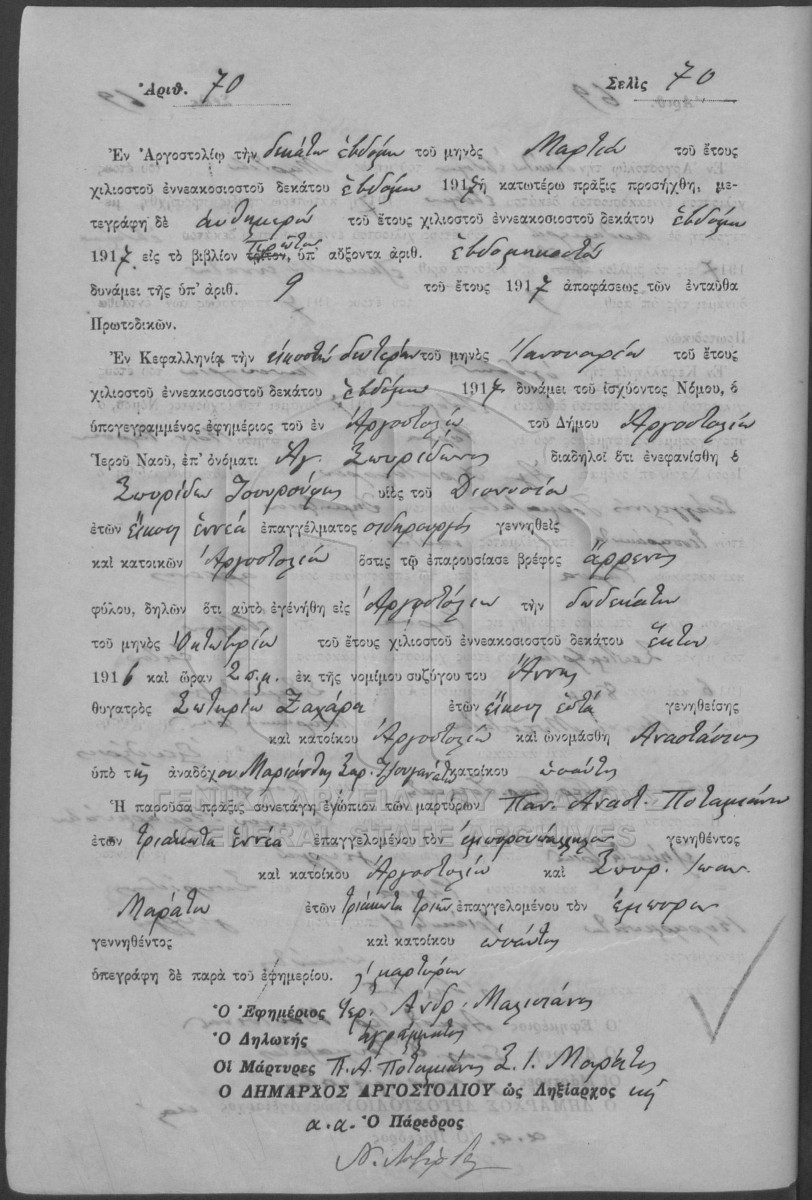 Ἀριθ. 70 Σελὶς 70
Ἐν Ἀργοστολίῳ τὴν δεκάτην ἑβδόμην τοῦ μηνὸς Μαρτίου τοῦ ἔτους
χιλιοστοῦ ἐννεακοσιοστοῦ δεκάτου ἑβδόμου 1917 ἡ κατωτέρω πρᾶξις προσήχθη, με-
τεγράφη δὲ αὐθημερὸν τοῦ ἔτους χιλιοστοῦ ἐννεακοσιοστοῦ δεκάτου ἑβδόμου
1917 εἰς τὸ βιβλίον τρίτον, πρῶτον ὑπ' αὔξοντα ἀριθ. ἑβδομηκοστὸν
δυνάμει τῆς ὑπ' ἀριθ. 9 τοῦ ἔτους 1917 ἀποφάσεως τῶν ἐνταῦθα
Πρωτοδικῶν.
Ἐν Κεφαλληνίᾳ τὴν εἰκοστὴν δευτέραν τοῦ μηνὸς Ἰανουαρίου τοῦ ἔτους
χιλιοστοῦ ἐννεακοσιοστοῦ δεκάτου ἑβδόμου 1917 δυνάμει τοῦ ἰσχύοντος Νόμου, ὁ
ὑπογεγραμμένος ἐφημέριος τοῦ ἐν Ἀργοστολίῳ τοῦ Δήμου Ἀργοστολίου
Ἱεροῦ Ναοῦ, ἐπ' ὀνόματι Ἁγ. Σπυρίδωνος διαδηλοῖ ὅτι ἐνεφανίσθη ὁ
Σπυρίδων υἱὸς τοῦ Διονυσίου
ἐτῶν εἴκοσι ἐννέα ἐπαγγέλματος σιδηρουργὸς γεννηθεὶς
καὶ κατοικῶν Ἀργοστολίου ὅστις τῷ ἐπαρουσίασε βρέφος ἄρρενος
φύλου, δηλῶν ὅτι αὐτὸ ἐγένηθη εἰς Ἀργοστόλιον τὴν δωδεκάτην
τοῦ μηνὸς Ὀκτωβρίου τοῦ ἔτους χιλιοστοῦ ἐννεακοσιοστοῦ δεκάτου ἕκτου
1916 καὶ ὥραν 2 ἐκ τῆς νομίμου συζύγου του Ἄννης
θυγατρὸς Σωτηρίου Ζαχάρα ἐτῶν εἴκοσι ἑπτὰ γενηθείσης
καὶ κατοίκου Ἀργοστολίου καὶ ὠνομάσθη Ἀναστάσιος
ὑπὸ τῆς ἀναδόχου Μαριάνθης κατοίκου ὡσαύτως
Ἡ παροῦσα πρᾶξις συνετάγη ἐνώπιον τῶν μαρτύρων Παν. Αναστ. Ποταμιάνου
ἐτῶν τριάκοντα ἐννέα ἐπαγγελομένου τὸν ἐμποροϋπάλληλον γενηθέντος
καὶ κατοίκου Ἀργοστολίου καὶ Σπυρ. Ιωαν.
Μαράτου ἐτῶν τριάκοντα τριῶν ἐπαγγελομένου τὸν ἔμπορον
γεννηθέντος καὶ κατοίκου ὡσαύτως
ὑπεγράφη δὲ παρὰ τοῦ ἐφημερίου. μαρτύρων
Ὁ Ἐφημέριος Ἱερ. Ἀνδρ.
Ὁ Δηλωτὴς ἀγράμματος
Οἱ Μάρτυρες Π. Α. Ποταμιάνος Σ. Ι. Μαράτος
Ο ΔΗΜΑΡΧΟΣ ΑΡΓΟΣΤΟΛΙΟΥ ὡς Ληξίαρχος
α.α. Ὁ Πάρεδρος
ΓΕΝΙΚΑ ΑΡΧΕΙΑ ΤΟΥ ΚΡΑΤΟΥΣ
GENERAL STATE ARCHIVES